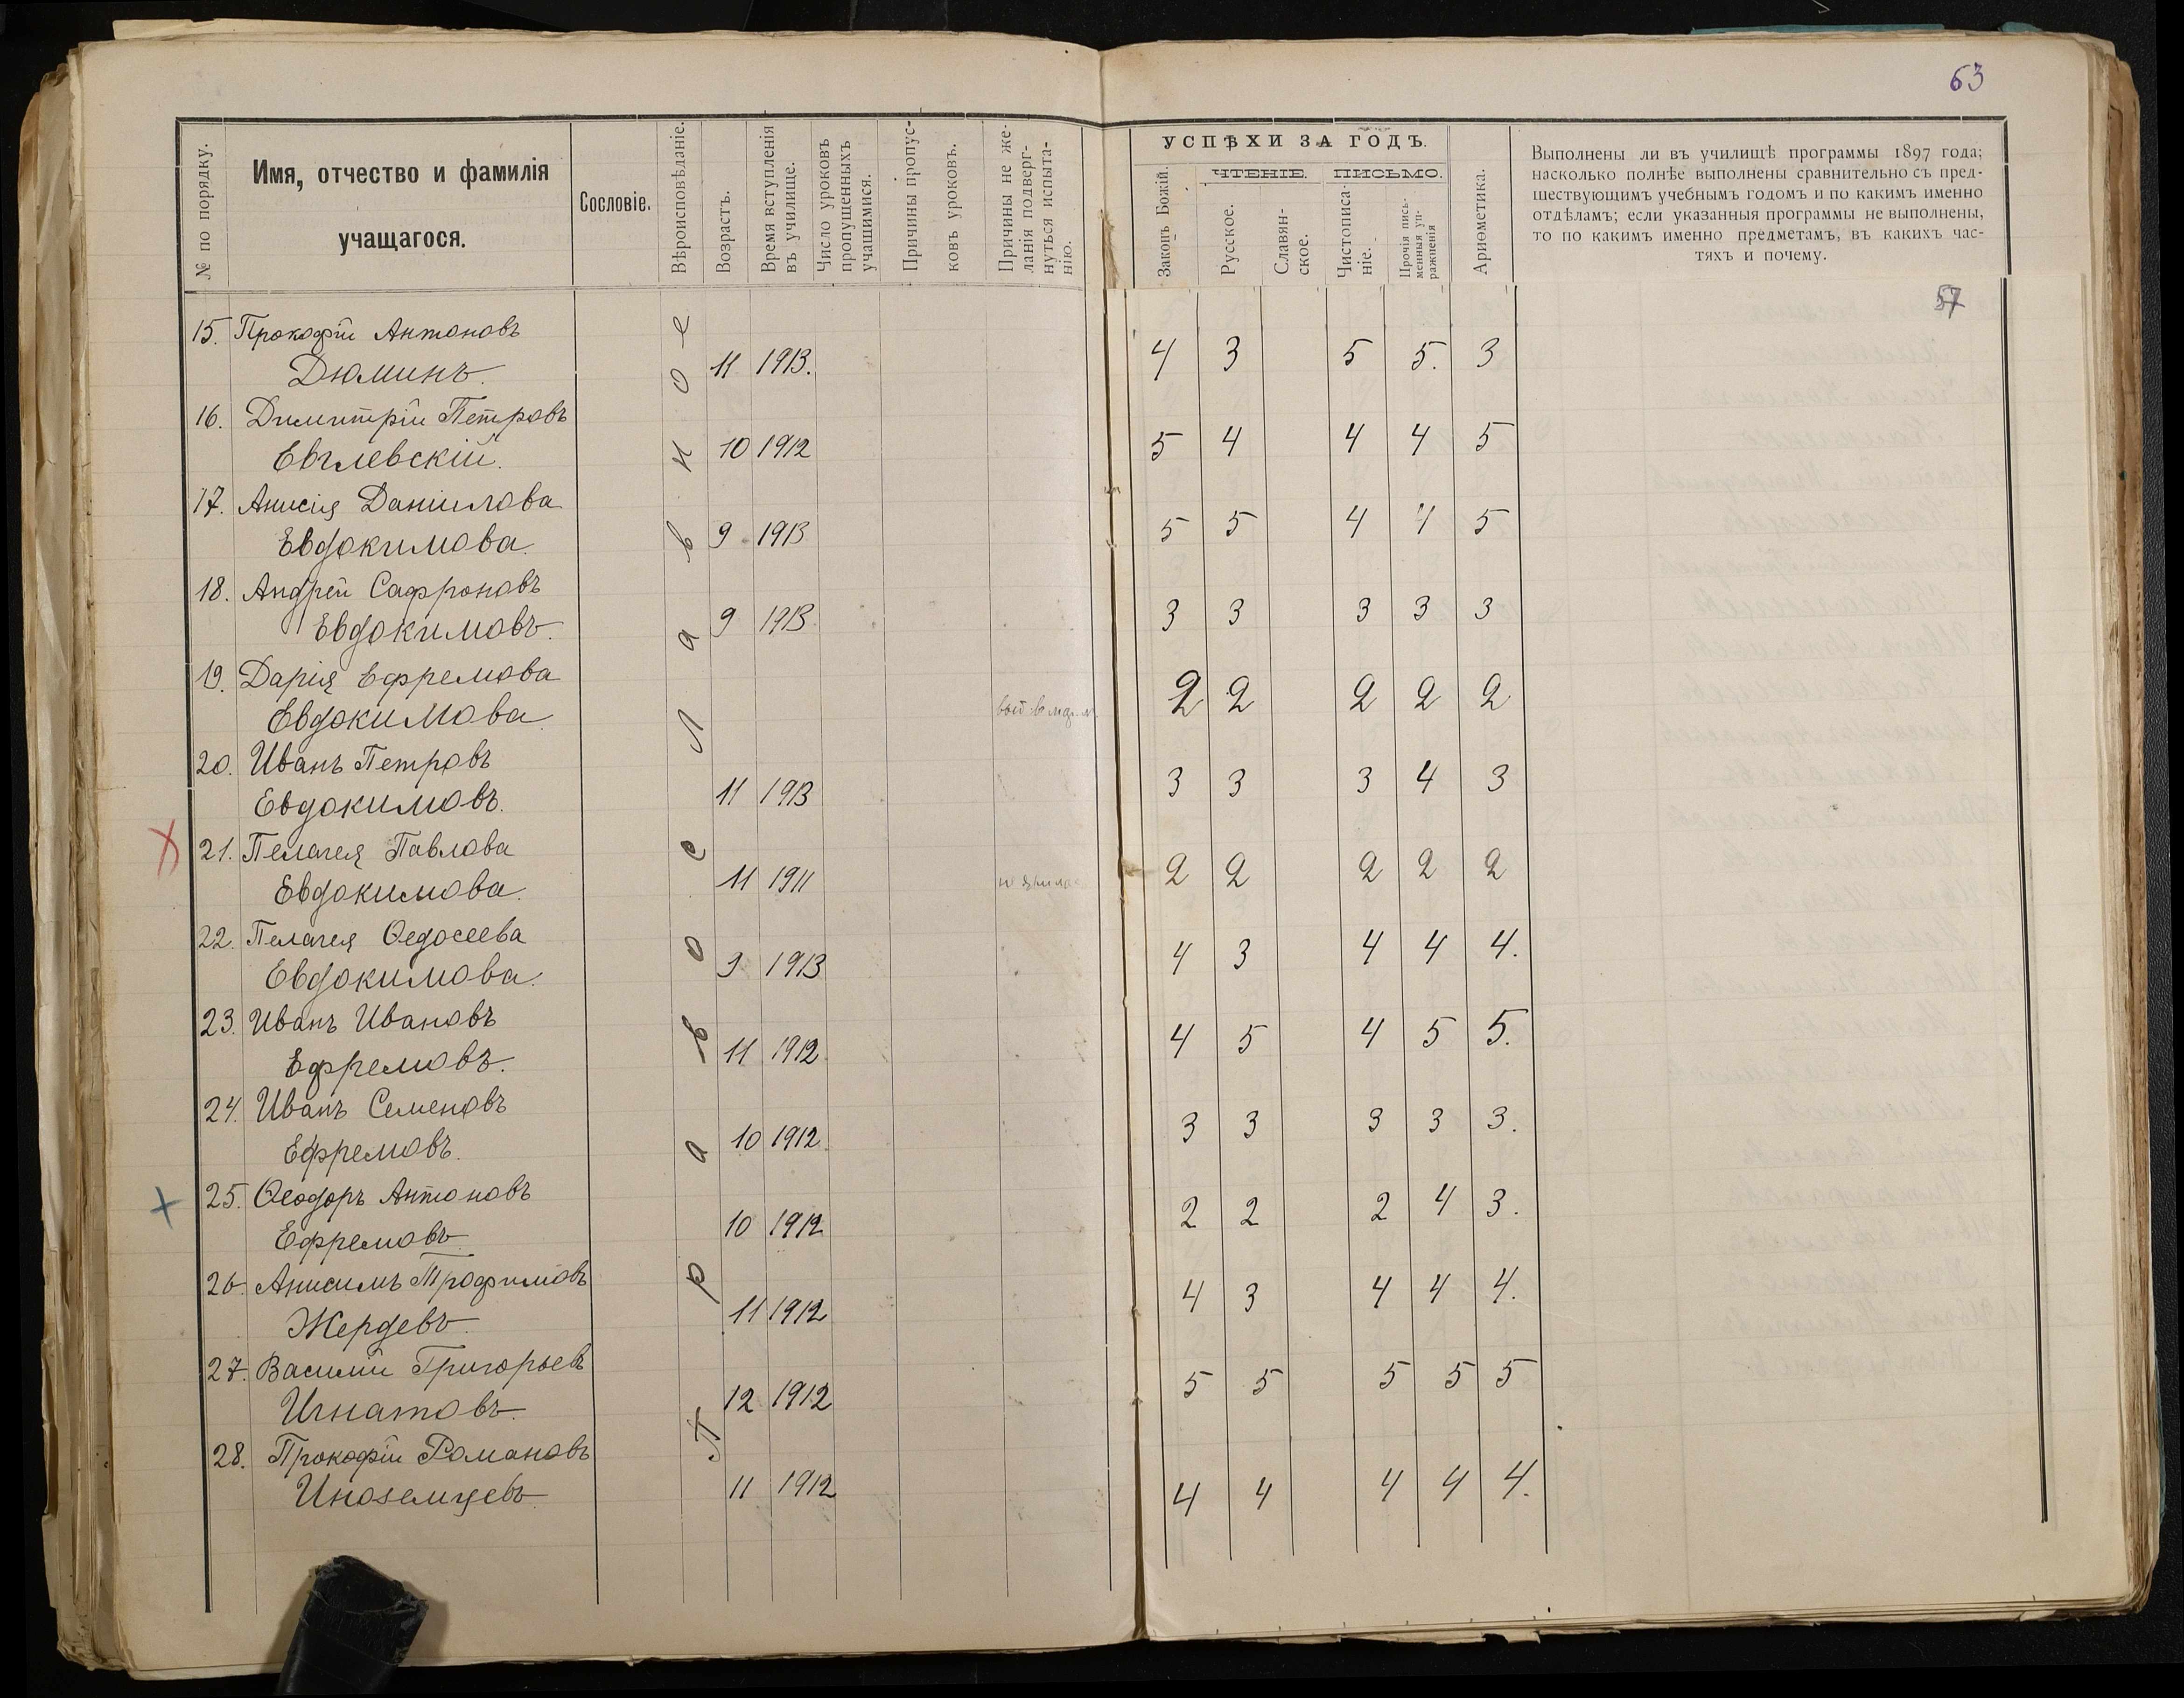 63
№ по порядку.
Имя, отчество и фамилія
учащагося.
Сословіе.
Вѣроисповѣданіе.
Возрастъ.
Время вступленія
въ училище.
Число уроковъ
пропущенныхъ
учащимися.
Причины пропус-
ковъ уроковъ.
Причины не же-
ланія подверг-
нуться испыта-
нію.
УСПѢХИ ЗА ГОДЪ.
Законъ Божій.
ЧТЕНІЕ.
Русское.
Славян-
ское.
ПИСЬМО.
Чистописа-
ніе.
Прочія пись-
менныя уп-
ражненія
Ариѳметика.
Выполнены ли въ училищѣ программы 1897 года;
насколько полнѣе выполнены сравнительно съ пред-
шествующимъ учебнымъ годомъ и по какимъ именно
отдѣламъ; если указанныя программы не выполнены,
то по какимъ именно предметамъ, въ какихъ час-
тяхъ и почему.
57
Православное
15. Прокофій Антоновъ
Дюминъ. 11 1913. 4 3 5 5. 3
16. Димитрій Петровъ
Евглевскій. 10 1912 5 4 4 4 5
17. Анисія Даніилова
Евдокимова. 9 1913 5 5 4 4 5
18. Андрей Сафроновъ
Евдокимовъ. 9 1913 3 3 3 3 3
19. Дарія Ефремова
Евдокимова. 2 2 2 2 2
20. Иванъ Петровъ
Евдокимовъ. 11 1913 3 3 3 4 3
21. Пелагея Павлова
Евдокимова. 11 1911 2 2 2 2 2
22. Пелагея Ѳедосеева
Евдокимова. 9 1913 4 3 4 4 4.
23. Иванъ Ивановъ
Ефремовъ. 11 1912 4 5 4 5 5.
24. Иванъ Семеновъ
Ефремовъ. 10 1912 3 3 3 3 3.
25. Ѳеодоръ Антоновъ
Ефремовъ 10 1912 2 2 2 4 3.
26. Анисимъ Трофимовъ
Жердевъ. 11 1912 4 3 4 4 4.
27. Василій Григорьевъ
Игнатовъ. 12 1912 5 5 5 5 5
28. Прокофій Романовъ
Иноземцевъ 11 1912 4 4 4 4 4.